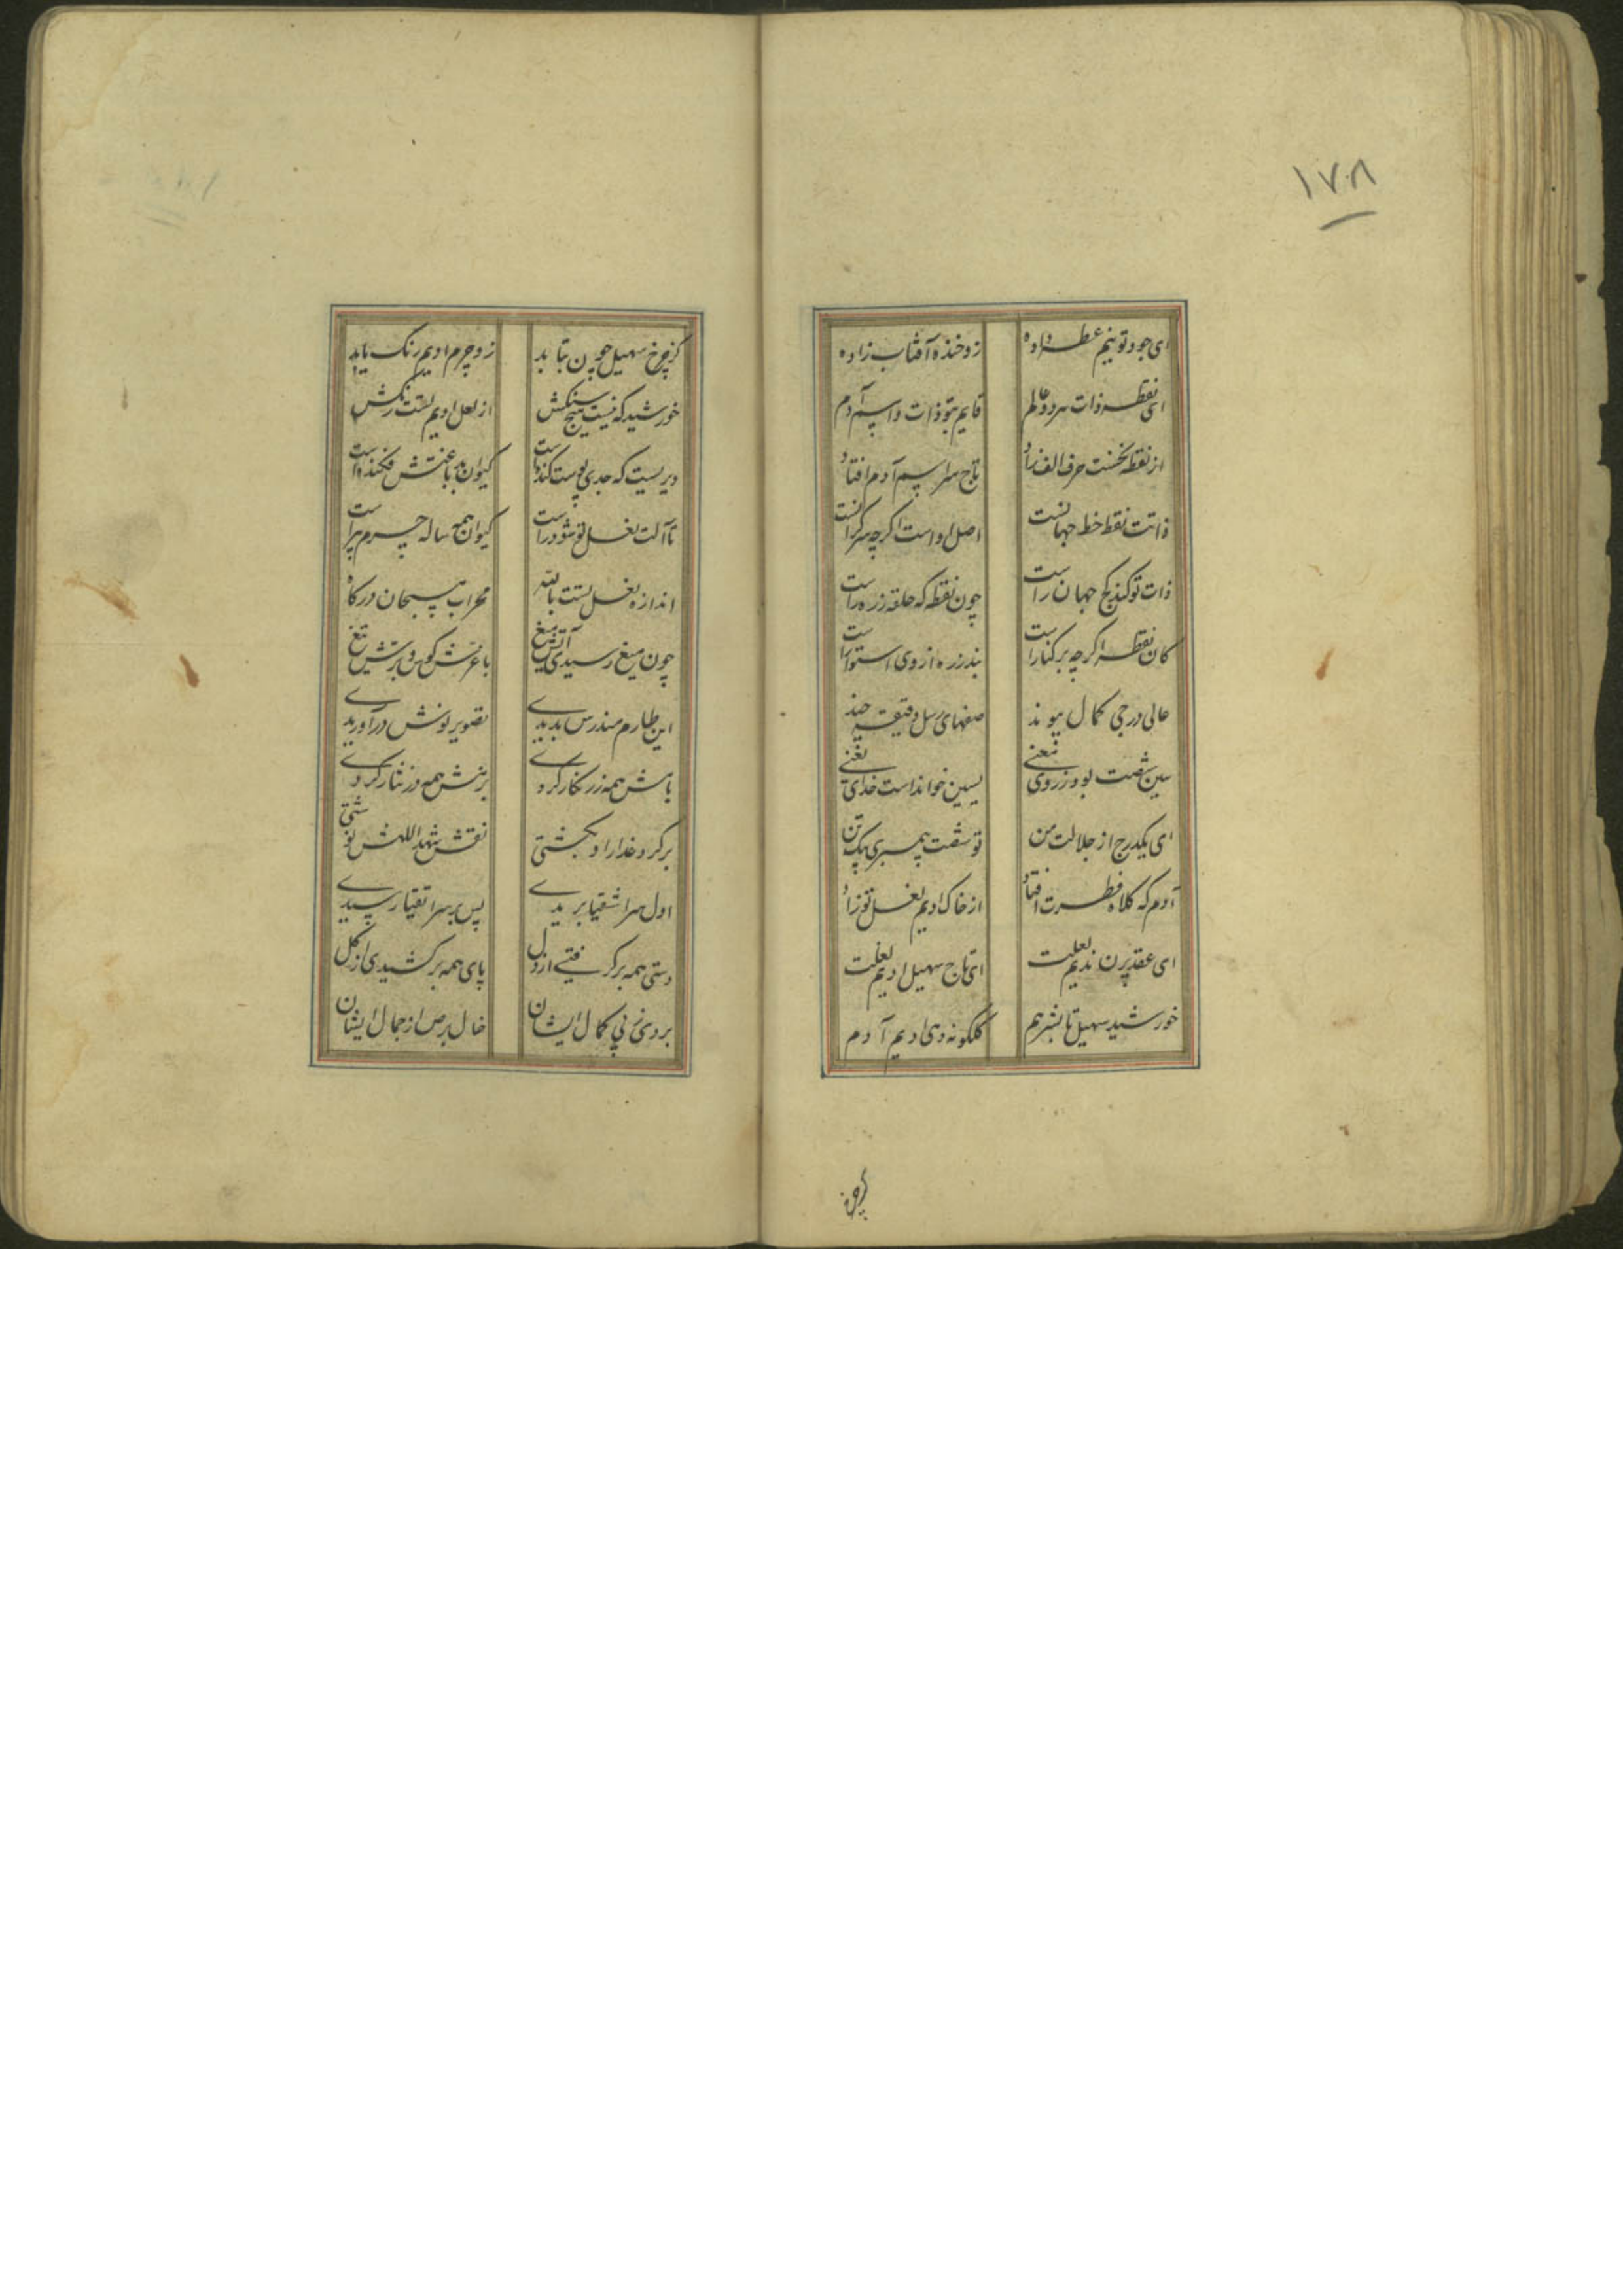 ۱۷۸
ای جود تو نیم عطسه داده زو خنده آفتاب زاده
ای نقطه ذات هر دو عالم قایم بتو ذات و اسم آدم
از نقطه نخست حرف الف زاد تاج سر اسم آدم افتاد
ذاتت نقط خط جهانست اصل او است اگرچه بر کرانست
ذات تو کند کج جهان راست چون نقطه که حلقه زره راست
کان نقطه اگرچه بر کنار است بند زره از وی استوار است
عالی درجی کمال پیوند صفهای رسل دقیقه چند
سین شصت بود ز روی معنی یسین خواندست خدای یعنی
ای یکدرج از جلالت من تو شصت پیمبری بیک تن
آدم که کلاه فطرت افتاد از خاک ادیم نعل تو زاد
ای عقد پرن ندیم نعلت ای تاج سهیل ادیم نعلت
خورشید سهیل تابش هم گلگونه دهی ادیم آدم
کز چرخ
کز چرخ سهیل چون بتابد زو چرم ادیم رنگ یابد
خورشید که نیست هیچ سنگش از نعل ادیم تست رنگش
دیریست که جدی پوست کنداست کیوان بدباغتش فکنداست
تا آلت نعل تو شود راست کیوان همه ساله چرم پیراست
اندازه نعل تست بالله محراب مسبحان درگاه
چون میغ رسیدی آتشین میغ با غرش کوس و برش تیغ
این طارم مندرس بدیدی تصویر نوش درآوریدی
بامش همه زر نگار کردی بر نش همه در نثار کردی
برکرد غدار او بجشتی نقش شهد اللهش نوشتی
اول سر اشقیا بریدی پس بر سر اتقیا رسیدی
دستی همه برگرفتی از دل پای همه برکشیدی از گل
بردی ز پی کمال ایشان خال برص از جمال ایشان